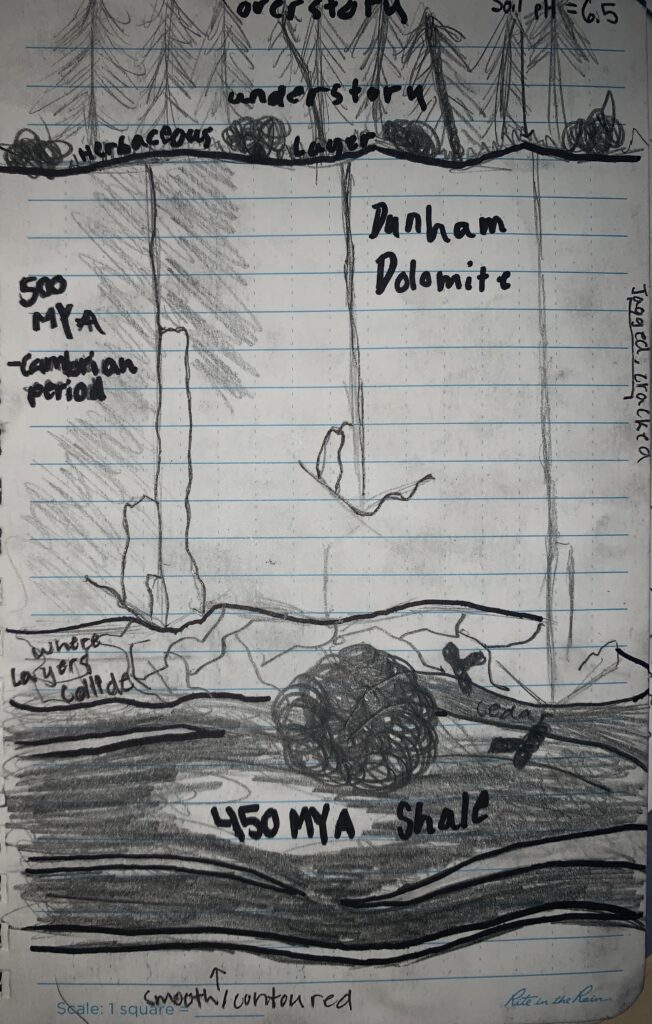 overstory
Soil pH = 6.5
understory
Herbaceous Layer
Dunham
Dolomite
500
MYA
-Cambrian
period
Jagged, cracked
where
Layers
Collide
cedar
450 MYA Shale
↑
smooth/contoured
Scale: 1 square =
Rite in the Rain